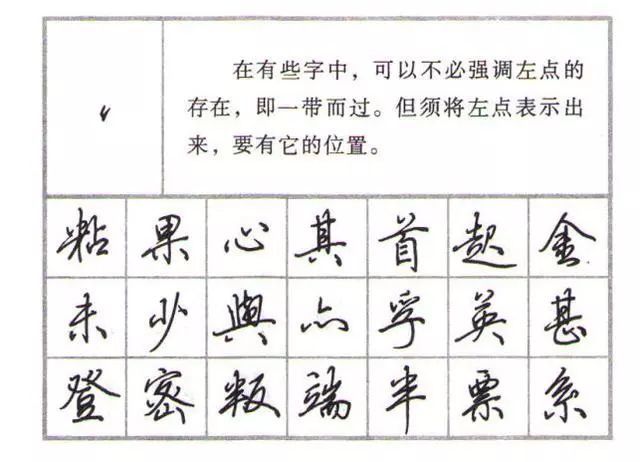 在有些字中，可以不必强调左点的
存在，即一带而过。但须将左点表示出
来，要有它的位置。
粘 果 心 其 首 超 金
未 少 與 孚 英 甚
登 密 叛 端 半 票 系